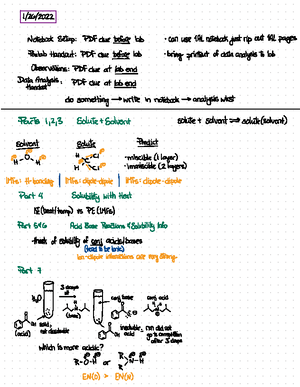 1/26/2022
Notebook Setup: PDF due before lab
• can use old notebook just rip out old pages
Prelab Handout: PDF due before lab
• bring printout of data analysis to lab
Observations: PDF due at lab end
Data Analysis Handout: PDF due at lab end
do something → write in notebook → analysis sheet
Parts 1,2,3 Solute + Solvent
solute + solvent → solute (solvent)
Solvent
Solute
Predict
H O H
H C Cl Cl
• miscible (1 layer)
• immiscible (2 layers)
IMFs: H-bonding
IMFs: dipole-dipole
IMFs: dipole-dipole
Part 4 Solubility with Heat
KE (heat/temp) vs PE (IMFs)
Part 5&6 Acid Base Reactions & Solubility Info
-think of solubility of conj acids/bases
(tend to be ionic)
ion-dipole interactions are very strong
Part 7
H₂O
3 drops of
conj base
conj acid
(acid)
solid, not dissolvable
(base)
insoluble, rxn did not go to completion after 3 drops
which is more acidic?
R-O-H or R-N-H
EN(O) > EN(N)